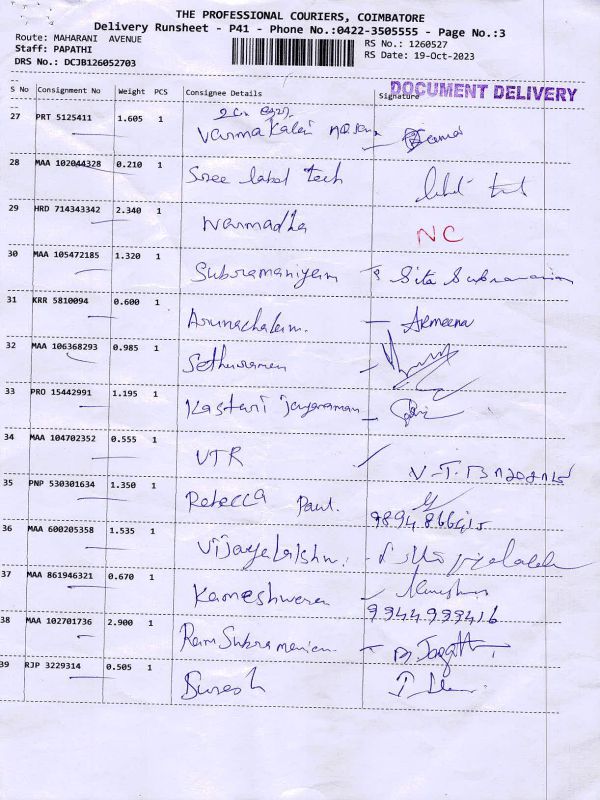 THE PROFESSIONAL COURIERS, COIMBATORE
Delivery Runsheet - P41 - Phone No.:0422-3505555 - Page No.:3
Route: MAHARANI AVENUE
Staff: PAPATHI
DRS No.: DCJB126052703
RS No.: 1260527
RS Date: 19-Oct-2023
DOCUMENT DELIVERY
S No Consignment No Weight PCS Consignee Details Signature
27 PRT 5125411 1.605 1
Varma Kalai
28 MAA 102044328 0.210 1 Sree label tech
29 HRD 714343342 2.340 1 Narmadha NC
30 MAA 105472185 1.320 1 Subramaniyam Sita Subramanian
31 KRR 5810094 0.600 1 Arunachalam. - Armeena
32 MAA 106368293 0.985 1 Sethuraman
33 PRO 15442991 1.195 1 Kasturi Jayaraman
34 MAA 104702352 0.555 1 VTR
35 PNP 530301634 1.350 1 Rebecca Paul.
36 MAA 600205358 1.535 1 Vijayalakshmi
37 MAA 861946321 0.670 1 Kameshwaran
9944999416
38 MAA 102701736 2.900 1 Ram Subramaniam
39 RJP 3229314 0.505 1 Suresh